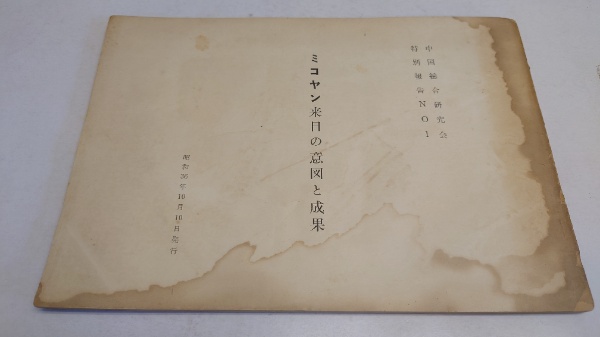 中国総合研究会
特別報告NO1
ミコヤン来日の意図と成果
昭和36年10月10日発行